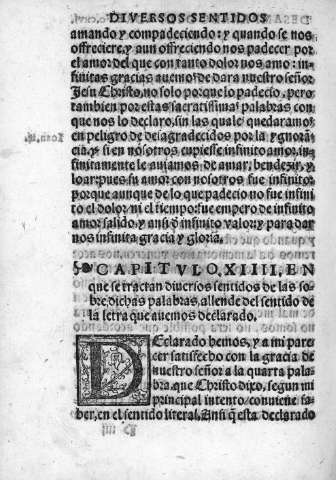 DIVERSOS SENTIDOS
amando y compadeciendo: y quando se nos
offreciere, y aun offreciendo nos padecer por
el amor del que con tanto dolor nos amo: in-
finitas gracias auemos de dar a nuestro señor
Jesu Christo, no solo por que lo padecio, pero
tambien por estas sacratissimas palabras con
que nos lo declaro, sin las quales quedaramos
en peligro de desagradecidos por la ygnorã
cia. y si en nosotros cupiesse infinito amor, in-
finitamente le auiamos de amar, bendezir, y
loar: pues su amor con nosotros fue infinito:
porque aunque de lo que padecio no fue infini
to el dolor ni el tiempo: fue empero de infinito
amor salido, y ansi d̃ infinito valor: y para dar
nos infinita gracia y gloria.
CAPITVLO. XIIII, EN
que se tractan diuersos sentidos de las so-
bre dichas palabras, allende del sentido de
la letra que auemos declarado.
DEclarado hemos, y a mi pare
cer satisfecho con la gracia de
nuestro señor a la quarta pala-
bra, que Christo dixo, segun mi
principal intento, conuiene sa-
ber, en el sentido literal. Ansi q̃ esta declarado